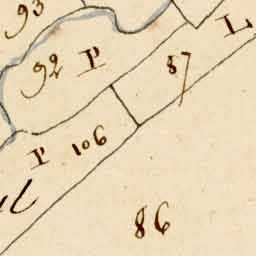 93
92 P
87
L
P 106
86